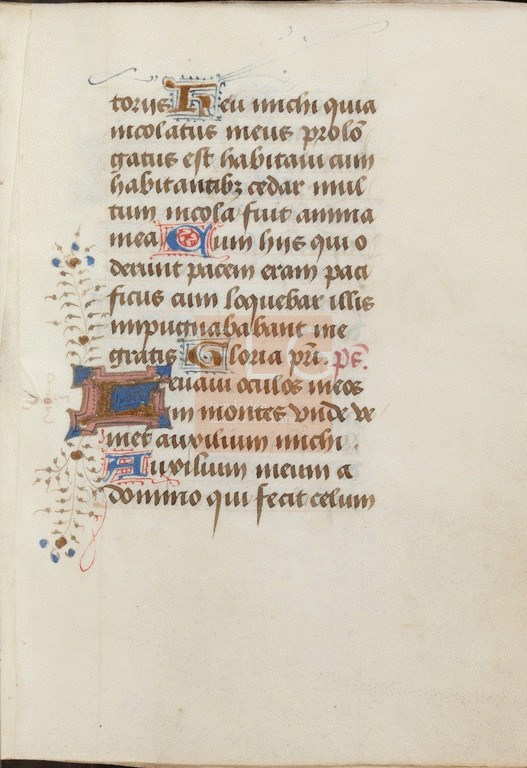 torijs Heu michi quia
incolatus meus prolō
gatus est habitaui cum
habitantibꝫ cedar mul
tum incola fuit anima
mea Cum hijs qui o
derunt pacem eram paci
ficus cum loquebar illis
impugnababant me
gratis Gloria pr̄i. pš.
Leuaui oculos meos
in montes vnde ve
niet auxilium michi
Auxilium meum a
domino qui fecit celum